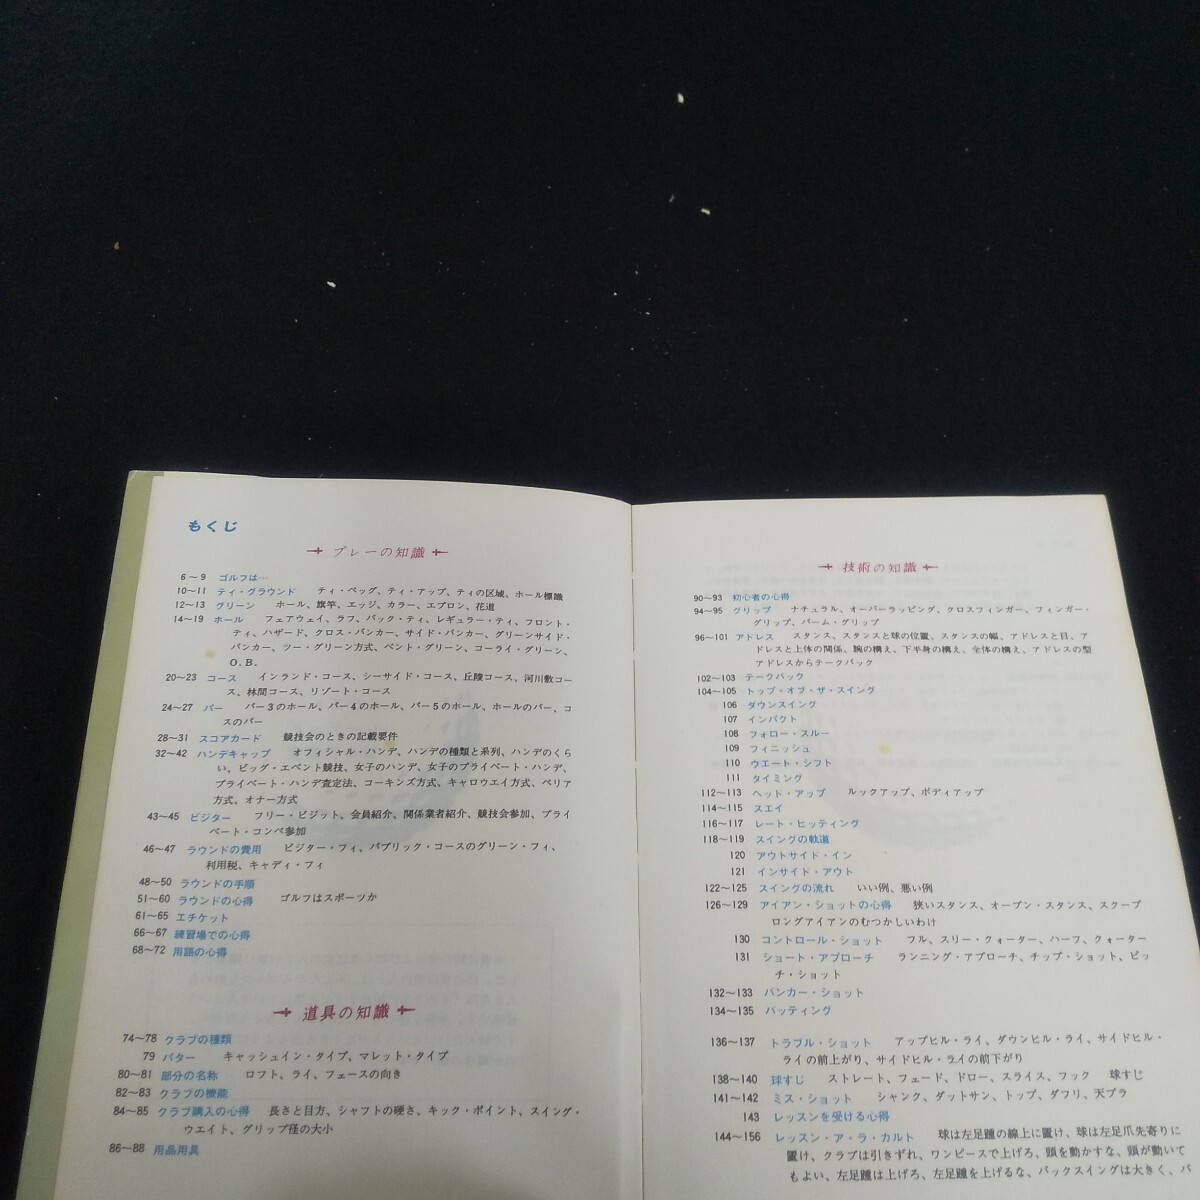 もくじ
プレーの知識
6〜9 ゴルフは…
10〜11 ティ・グラウンド ティ・ペッグ、ティ・アップ、ティの区域、ホール標識
12〜13 グリーン ホール、旗竿、エッジ、カラー、エプロン、花道
14〜19 ホール フェアウェイ、ラフ、バック・ティ、レギュラー・ティ、フロント・
ティ、ハザード、クロス・バンカー、サイド・バンカー、グリーンサイド・
バンカー、ツー・グリーン方式、ベント・グリーン、コーライ・グリーン、
O.B.
20〜23 コース インランド・コース、シーサイド・コース、丘陵コース、河川敷コー
ス、林間コース、リゾート・コース
24〜27 パー パー3のホール、パー4のホール、パー5のホール、ホールのパー、コ
スのパー
28〜31 スコアカード 競技会のときの記載要件
32〜42 ハンデキャップ オフィシャル・ハンデ、ハンデの種類と系列、ハンデのくら
い、ビッグ・エベント競技、女子のハンデ、女子のプライベート・ハンデ、
プライベート・ハンデ査定法、コーキンズ方式、キャロウエイ方式、ペリア
方式、オナー方式
43〜45 ビジター フリー・ビジット、会員紹介、関係業者紹介、競技会参加、プライ
ベート・コンペ参加
46〜47 ラウンドの費用 ビジター・フィ、パブリック・コースのグリーン・フィ、
利用税、キャディ・フィ
48〜50 ラウンドの手順
51〜60 ラウンドの心得 ゴルフはスポーツか
61〜65 エチケット
66〜67 練習場での心得
68〜72 用語の心得
道具の知識
74〜78 クラブの種類
79 パター キャッシュイン・タイプ、マレット・タイプ
80〜81 部分の名称 ロフト、ライ、フェースの向き
82〜83 クラブの機能
84〜85 クラブ購入の心得 長さと目方、シャフトの硬さ、キック・ポイント、スイング・
ウエイト、グリップ径の大小
86〜88 用品用具
技術の知識
90〜93 初心者の心得
94〜95 グリップ ナチュラル、オーバーラッピング、クロスフィンガー、フィンガー・
グリップ、パーム・グリップ
96〜101 アドレス スタンス、スタンスと球の位置、スタンスの幅、アドレスと目、ア
ドレスと上体の関係、腕の構え、下半身の構え、全体の構え、アドレスの型
アドレスからテークバック
102〜103 テークバック
104〜105 トップ・オブ・ザ・スイング
106 ダウンスイング
107 インパクト
108 フォロー・スルー
109 フィニッシュ
110 ウエート・シフト
111 タイミング
112〜113 ヘッド・アップ ルックアップ、ボディアップ
114〜115 スエイ
116〜117 レート・ヒッティング
118〜119 スイングの軌道
120 アウトサイド・イン
121 インサイド・アウト
122〜125 スイングの流れ いい例、悪い例
126〜129 アイアン・ショットの心得 狭いスタンス、オープン・スタンス、スクープ
ロングアイアンのむつかしいわけ
130 コントロール・ショット フル、スリー・クォーター、ハーフ、クォーター
131 ショート・アプローチ ランニング・アプローチ、チップ・ショット、ピッ
チ・ショット
132〜133 バンカー・ショット
134〜135 パッティング
136〜137 トラブル・ショット アップヒル・ライ、ダウンヒル・ライ、サイドヒル・
ライの前上がり、サイドヒル・ライの前下がり
138〜140 球すじ ストレート、フェード、ドロー、スライス、フック 球すじ
141〜142 ミス・ショット シャンク、ダットサン、トップ、ダフリ、天プラ
143 レッスンを受ける心得
144〜156 レッスン・ア・ラ・カルト 球は左足踵の線上に置け、球は左足爪先寄りに
置け、クラブは引きずれ、ワンピースで上げろ、頭を動かすな、頭が動いて
もよい、左足踵は上げろ、左足踵を上げるな、バックスイングは大きく、バ